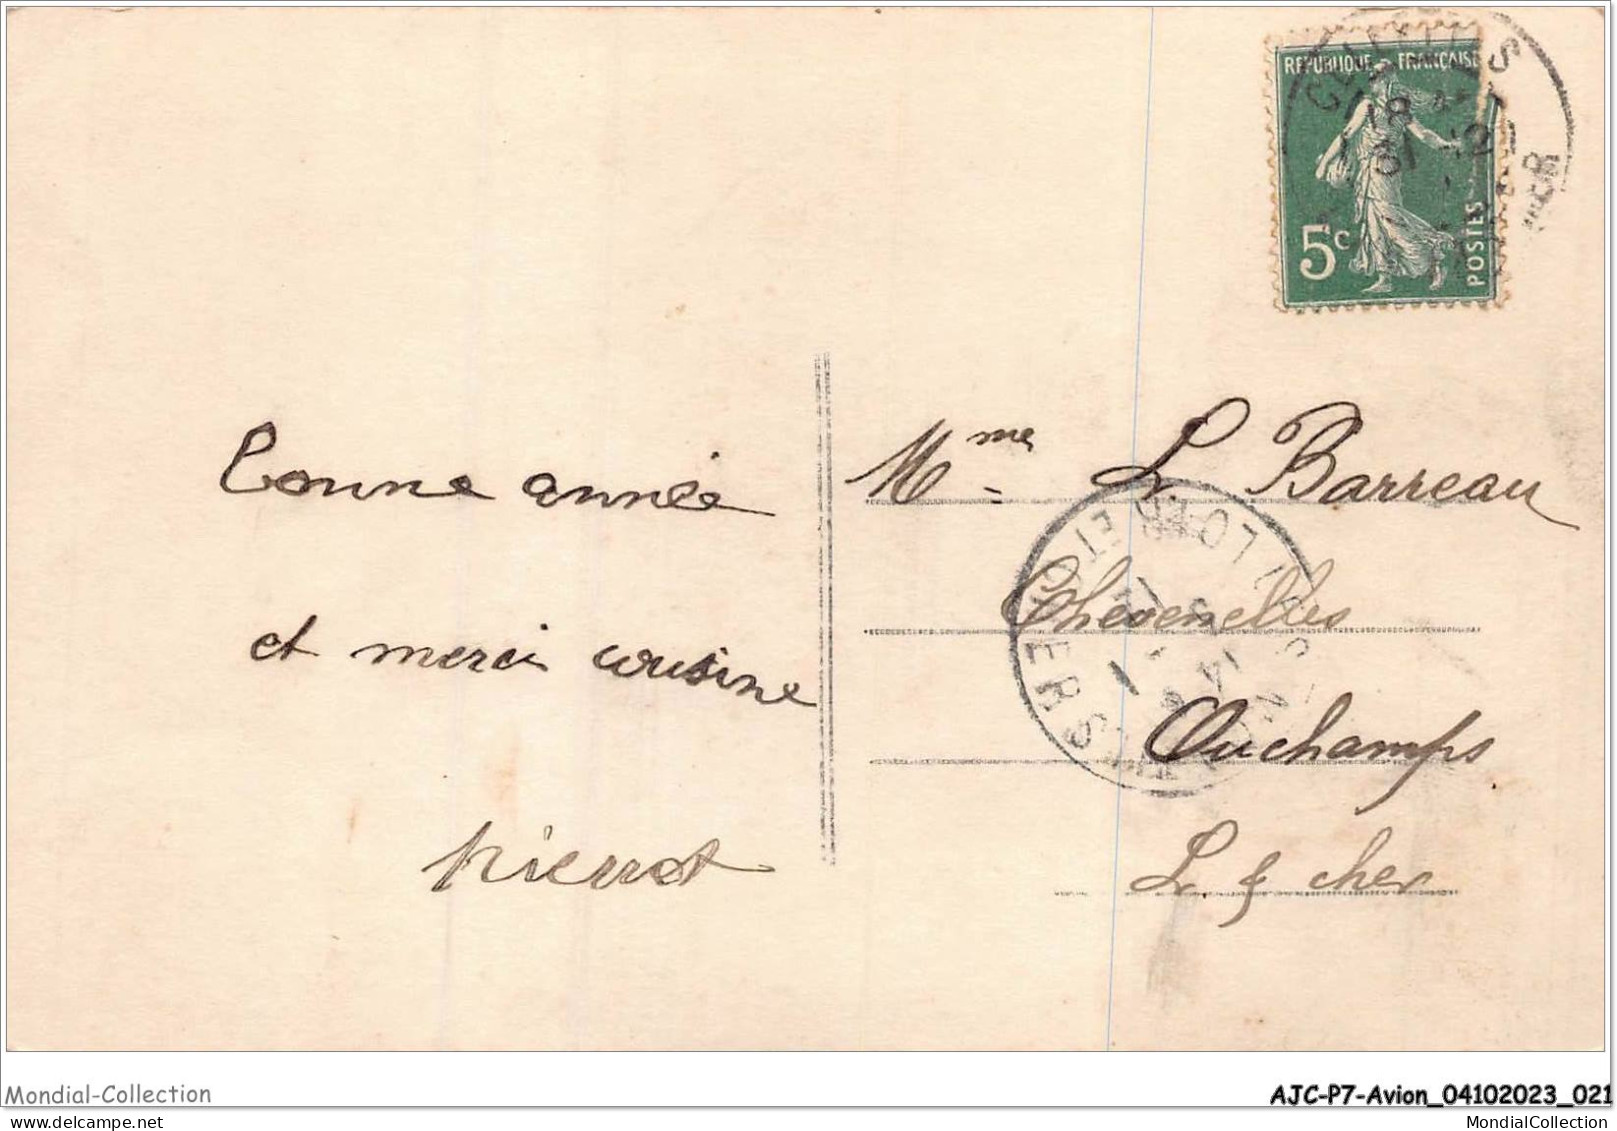 REPUBLIQUE FRANÇAISE
5c
POSTES
bonne année
et merci cousine
Pierrot
Mme L. Barreau
Chevenelles
Ouchamps
L. & cher
LOIR ET CHER
Mondial-Collection
AJC-P7-Avion_04102023_021
MondialCollection